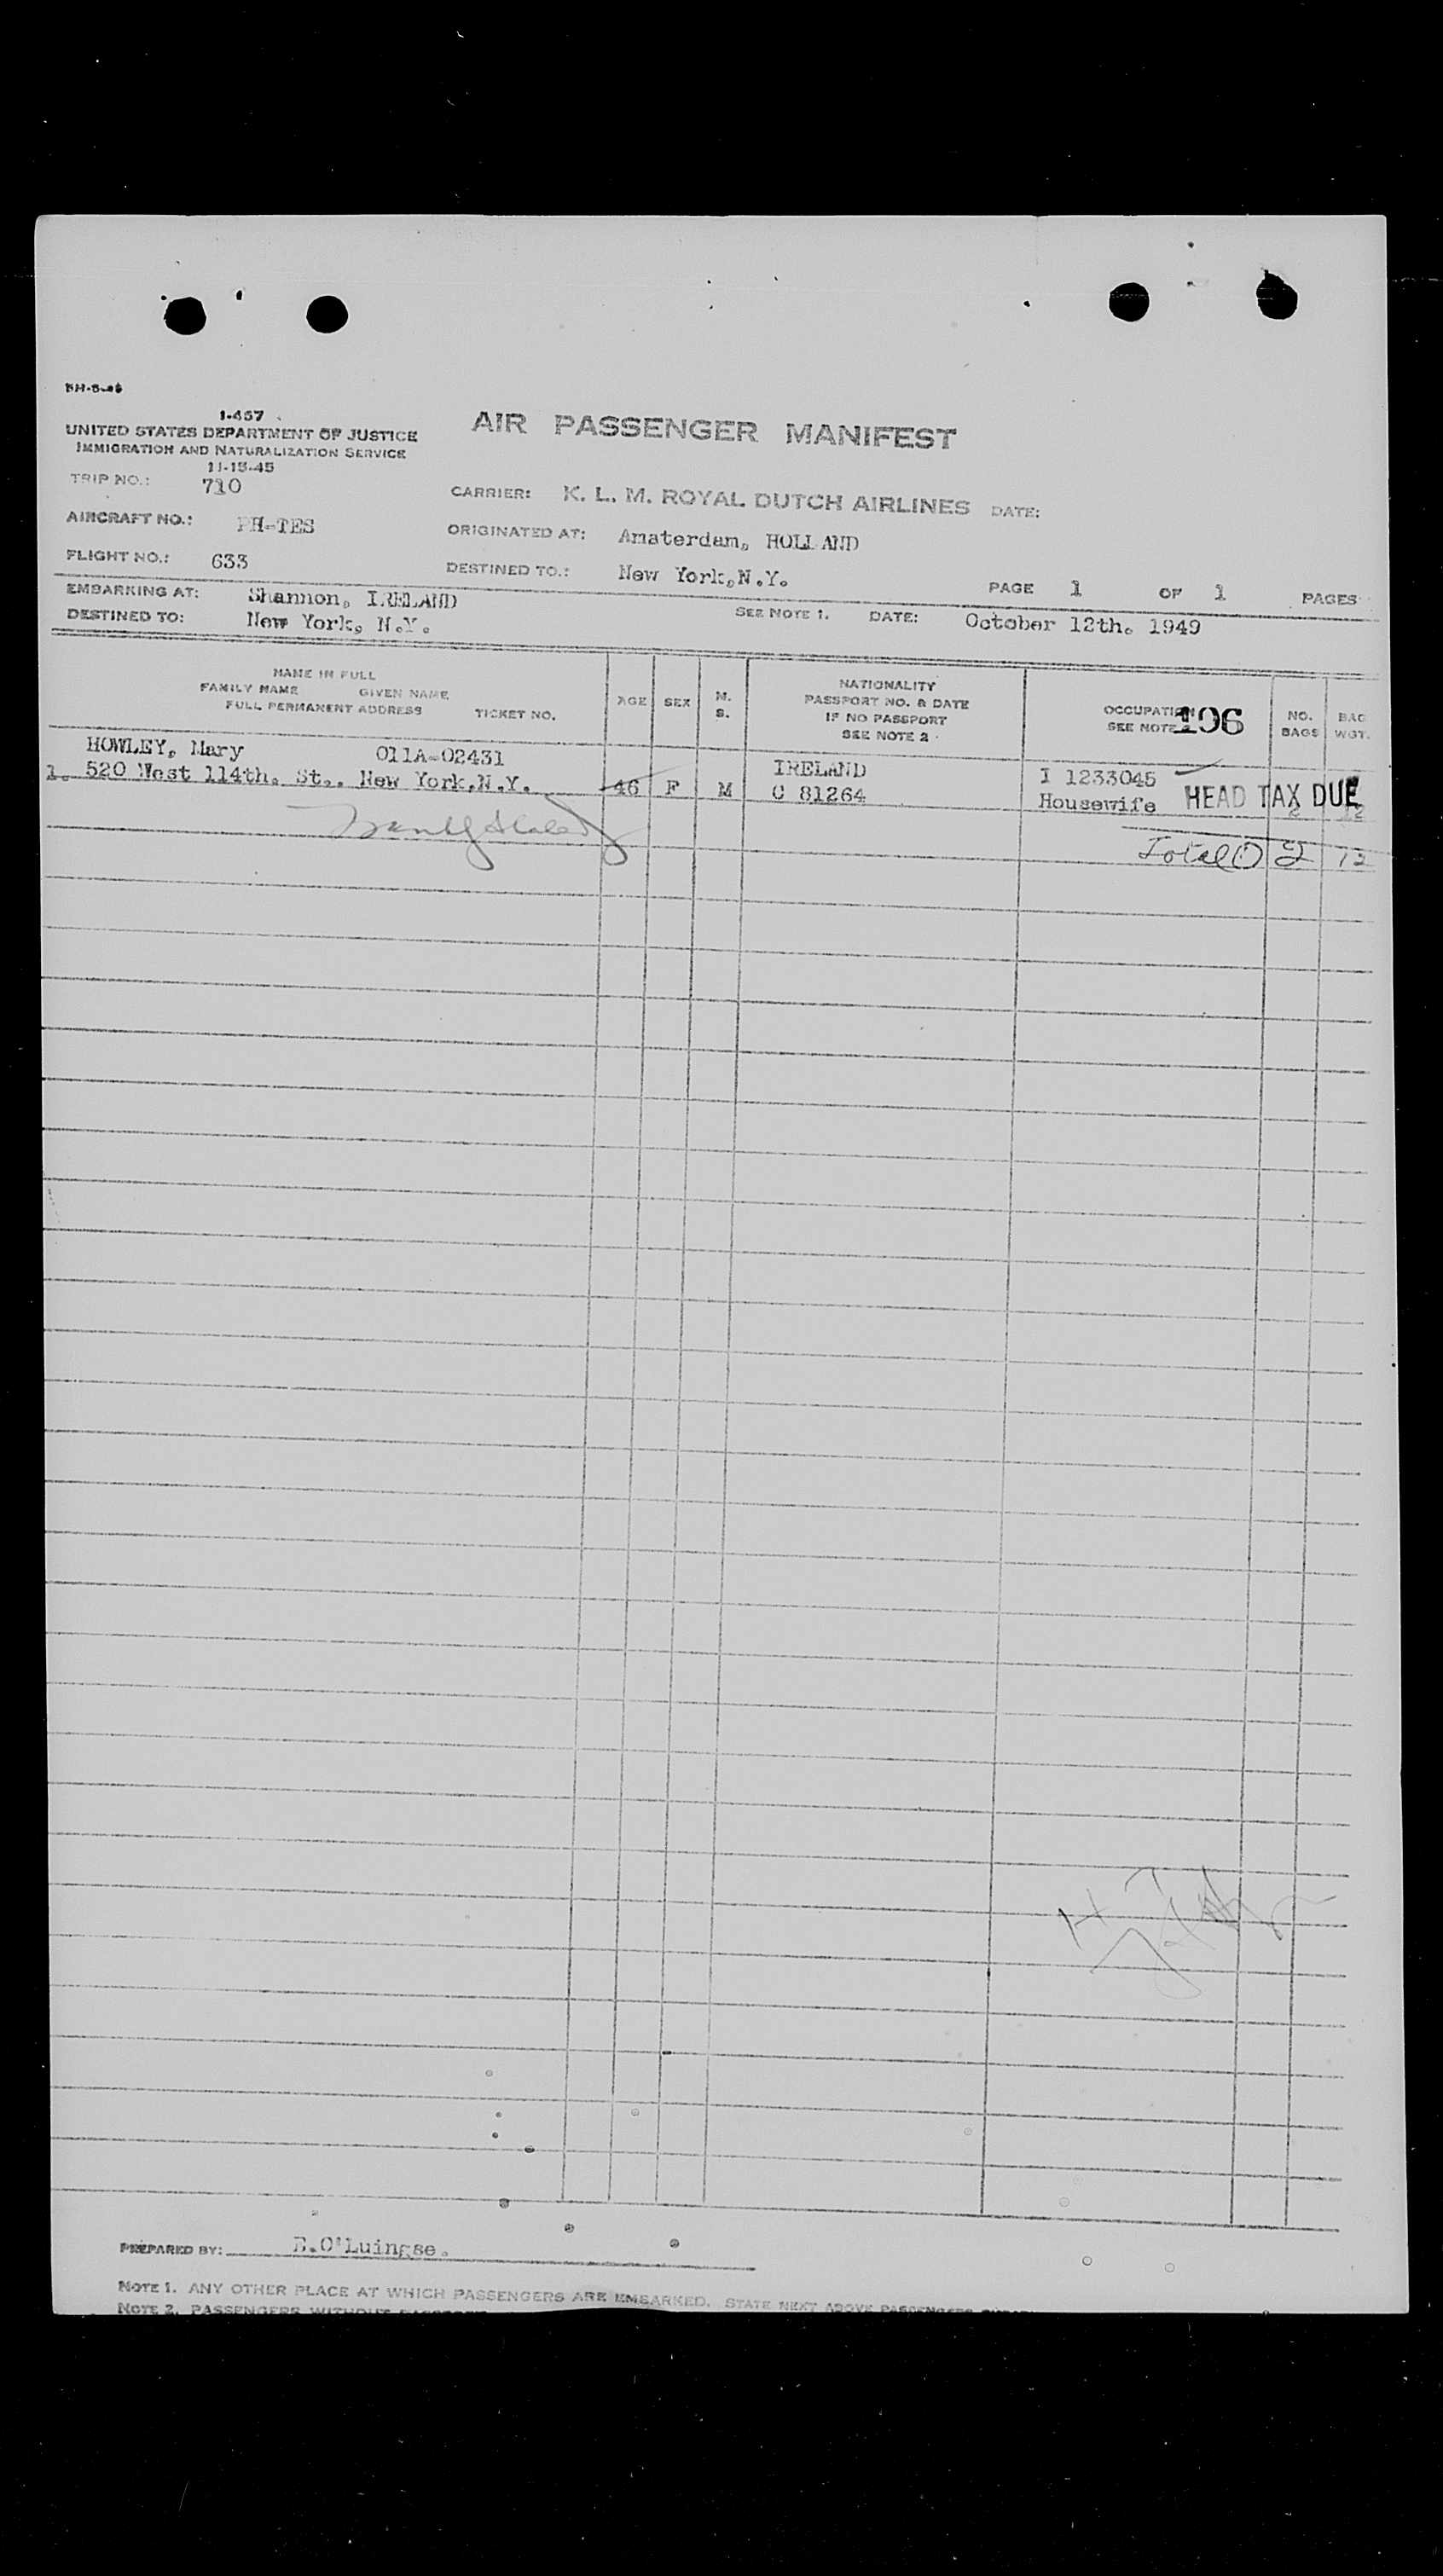 1-457
UNITED STATES DEPARTMENT OF JUSTICE
IMMIGRATION AND NATURALIZATION SERVICE
11-15-45
AIR PASSENGER MANIFEST
TRIP NO.: 710
CARRIER: K. L. M. ROYAL DUTCH AIRLINES DATE:
AIRCRAFT NO.: PH-TES
ORIGINATED AT: Amsterdam, HOLLAND
FLIGHT NO.: 633
DESTINED TO.: New York,N.Y.
PAGE 1 OF 1 PAGES
EMBARKING AT: Shannon, IRELAND
DESTINED TO: New York, N.Y.
SEE NOTE 1. DATE: October 12th. 1949
NAME IN FULL
FAMILY NAME GIVEN NAME
FULL PERMANENT ADDRESS TICKET NO.
AGE SEX M. S.
NATIONALITY
PASSPORT NO. & DATE
IF NO PASSPORT
SEE NOTE 2
OCCUPATION
SEE NOTE
106
NO. BAGS
BAG WGT.
HOWLEY, Mary 011A-02431 IRELAND I 1233045
1. 520 West 114th. St., New York,N.Y. 46 F M C 81264 Housewife 2 12
HEAD TAX DUE
Total 1 2 12
PREPARED BY: E.O'Luingse.
NOTE 1. ANY OTHER PLACE AT WHICH PASSENGERS ARE EMBARKED. STATE NEXT ABOVE PASSENGERS
NOTE 2. PASSENGERS WITHOUT